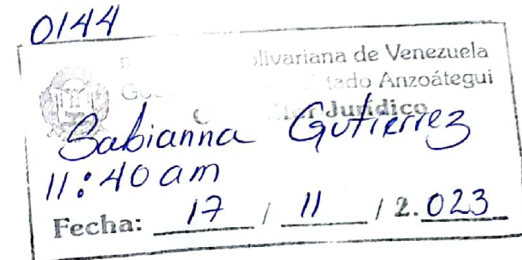 0144
de Venezuela
Anzoátegui
Jurídico
Sabianna Gutierrez
11:40 am
Fecha: 17 / 11 / 2.023